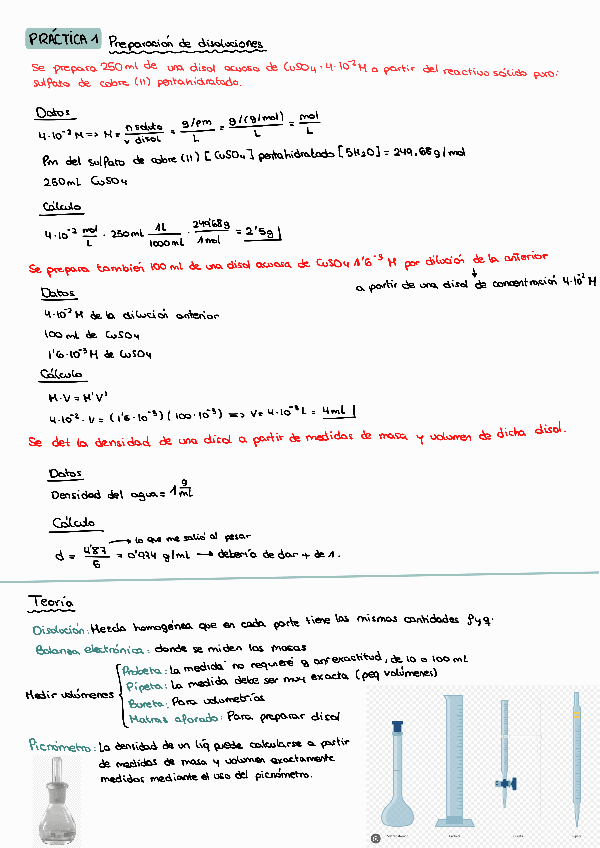 PRÁCTICA 1 Preparación de disoluciones
Se prepara 250 ml de una disol acuosa de CuSO4 · 4·10⁻² M a partir del reactivo sólido puro:
sulfato de cobre (II) pentahidratado.
Datos
4·10⁻² M => M = n soluto / v disol = g/pm / L = g/(g/mol) / L = mol / L
Pm del sulfato de cobre (II) [CuSO4] pentahidratado [5H2O] = 249,68 g/mol
250 mL CuSO4
Cálculo
4·10⁻² mol/L · 250 ml · 1L/1000 mL · 249'68g/1 mol = 2'5g
Se prepara también 100 ml de una disol acuosa de CuSO4 1'6⁻³ M por dilución de la anterior
↓
a partir de una disol de concentración 4·10⁻² M
Datos
4·10⁻² M de la dilución anterior
100 ml de CuSO4
1'6·10⁻³ M de CuSO4
Cálculo
M·V = M'V'
4·10⁻² · V = (1'6·10⁻³)(100·10⁻³) => V = 4·10⁻³ L = 4ml
Se det la densidad de una disol a partir de medidas de masa y volumen de dicha disol.
Datos
Densidad del agua = 1 g/mL
Cálculo
→ lo que me salió al pesar
d = 4'87/5 = 0'974 g/mL → debería de dar + de 1.
Teoría
Disolución: Mezcla homogénea que en cada parte tiene las mismas cantidades
Balanza electrónica: donde se miden las masas
Probeta: La medida no requiere gran exactitud, de 10 a 100 mL
Medir volúmenes Pipeta: La medida debe ser muy exacta (peq volúmenes)
Bureta: Para volumetrías
Matraz aforado: Para preparar disol
Picnómetro: La densidad de un líq puede calcularse a partir
de medidas de masa y volumen exactamente
medidos mediante el uso del picnómetro.